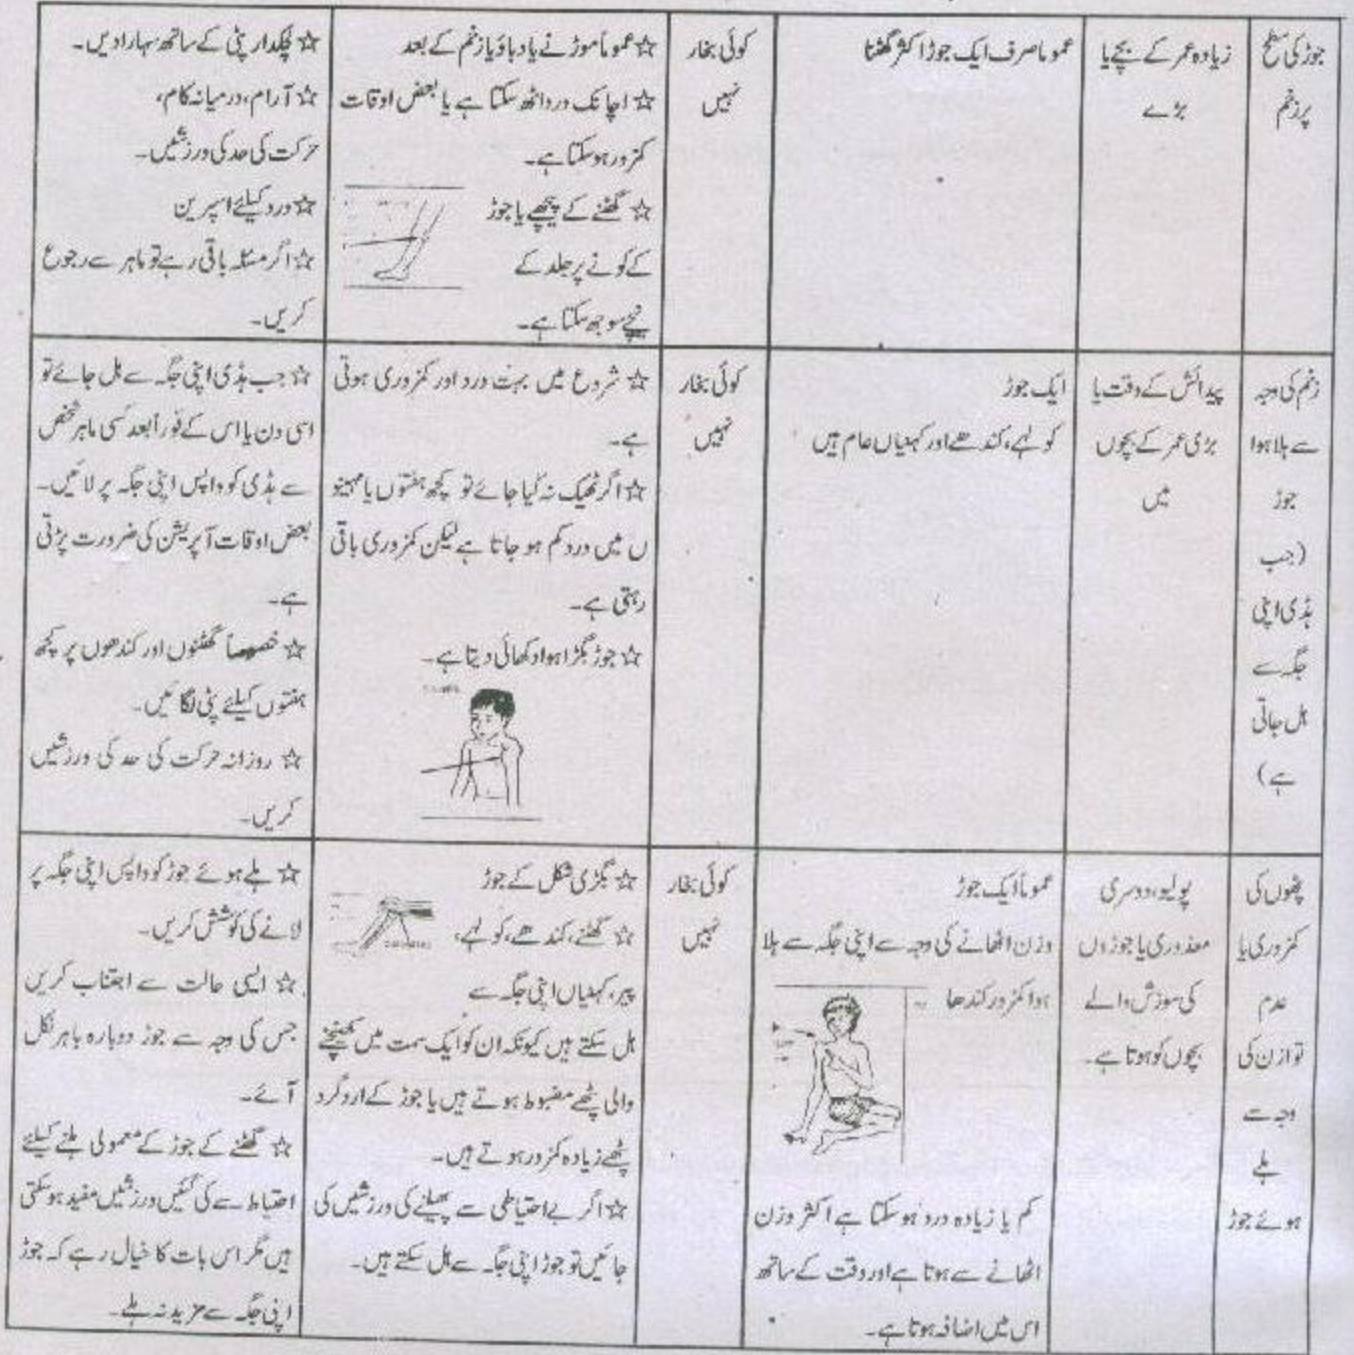 جوڑ کی سطح
پر زخم
زیادہ عمر کے بچے یا
بڑے
عموما صرف ایک جوڑ اکثر گھٹنا
کوئی بخار
نہیں
☆ عموماً موڑنے یا دباؤ یا زخم کے بعد
☆ اچانک درد اٹھ سکتا ہے یا بعض اوقات
کمزور ہوسکتا ہے۔
☆ گھٹنے کے پیچھے یا جوڑ
کے کونے پر جلد کے
نیچے سوجھ سکتا ہے۔
☆ لچکدار پٹی کے ساتھ سہارا دیں۔
☆ آرام، درمیانہ کام،
حرکت کی حد کی ورزشیں۔
☆ درد کیلئے اسپرین
☆ اگر مسئلہ باقی رہے تو ماہر سے رجوع
کریں۔
زخم کی وجہ
سے ہلا ہوا
جوڑ
(جب
ہڈی اپنی
جگہ سے
ہل جاتی
ہے)
پیدائش کے وقت یا
بڑی عمر کے بچوں
میں
ایک جوڑ
کولہے، کندھے اور کہنیاں عام ہیں
کوئی بخار
نہیں
☆ شروع میں بہت درد اور کمزوری ہوتی
ہے۔
☆ اگر ٹھیک نہ کیا جائے تو کچھ ہفتوں یا مہینو
ں میں درد کم ہو جاتا ہے لیکن کمزوری باقی
رہتی ہے۔
☆ جوڑ بگڑا ہوا دکھائی دیتا ہے۔
☆ جب ہڈی اپنی جگہ سے ہل جائے تو
اسی دن یا اس کے فوراً بعد کسی ماہر شخص
سے ہڈی کو واپس اپنی جگہ پر لائیں۔
بعض اوقات آپریشن کی ضرورت پڑتی
ہے۔
☆ خصوصاً گھٹنوں اور کندھوں پر کچھ
ہفتوں کیلئے پٹی لگائیں۔
☆ روزانہ حرکت کی حد کی ورزشیں
کریں۔
پٹھوں کی
کمزوری یا
عدم
توازن کی
وجہ سے
ہلے
ہوئے جوڑ
پولیو، دوسری
معذوری یا جوڑوں
کی سوزش والے
بچوں کو ہوتا ہے۔
عموماً ایک جوڑ
وزن اٹھانے کی وجہ سے اپنی جگہ سے ہلا
ہوا کمزور کندھا
کم یا زیادہ درد ہو سکتا ہے اکثر وزن
اٹھانے سے ہوتا ہے اور وقت کے ساتھ
اس میں اضافہ ہوتا ہے۔
کوئی بخار
نہیں
☆ بگڑی شکل کے جوڑ
☆ گھٹنے، کندھے، کولہے،
پیر، کہنیاں اپنی جگہ سے
ہل سکتے ہیں کیونکہ ان کو ایک سمت میں کھینچنے
والی پٹھے مضبوط ہوتے ہیں یا جوڑ کے اردگرد
پٹھے زیادہ کمزور ہوتے ہیں۔
☆ اگر بے احتیاطی سے پھیلنے کی ورزشیں کی
جائیں تو جوڑ اپنی جگہ سے ہل سکتے ہیں۔
☆ ہلے ہوئے جوڑ کو واپس اپنی جگہ پر
لانے کی کوشش کریں۔
☆ ایسی حالت سے اجتناب کریں
جس کی وجہ سے جوڑ دوبارہ باہر نکل
آئے۔
☆ گھٹنے کے جوڑ کے معمولی ہلنے کیلئے
احتیاط سے کی گئیں ورزشیں مفید ہوسکتی
ہیں مگر اس بات کا خیال رہے کہ جوڑ
اپنی جگہ سے مزید نہ ہلے۔